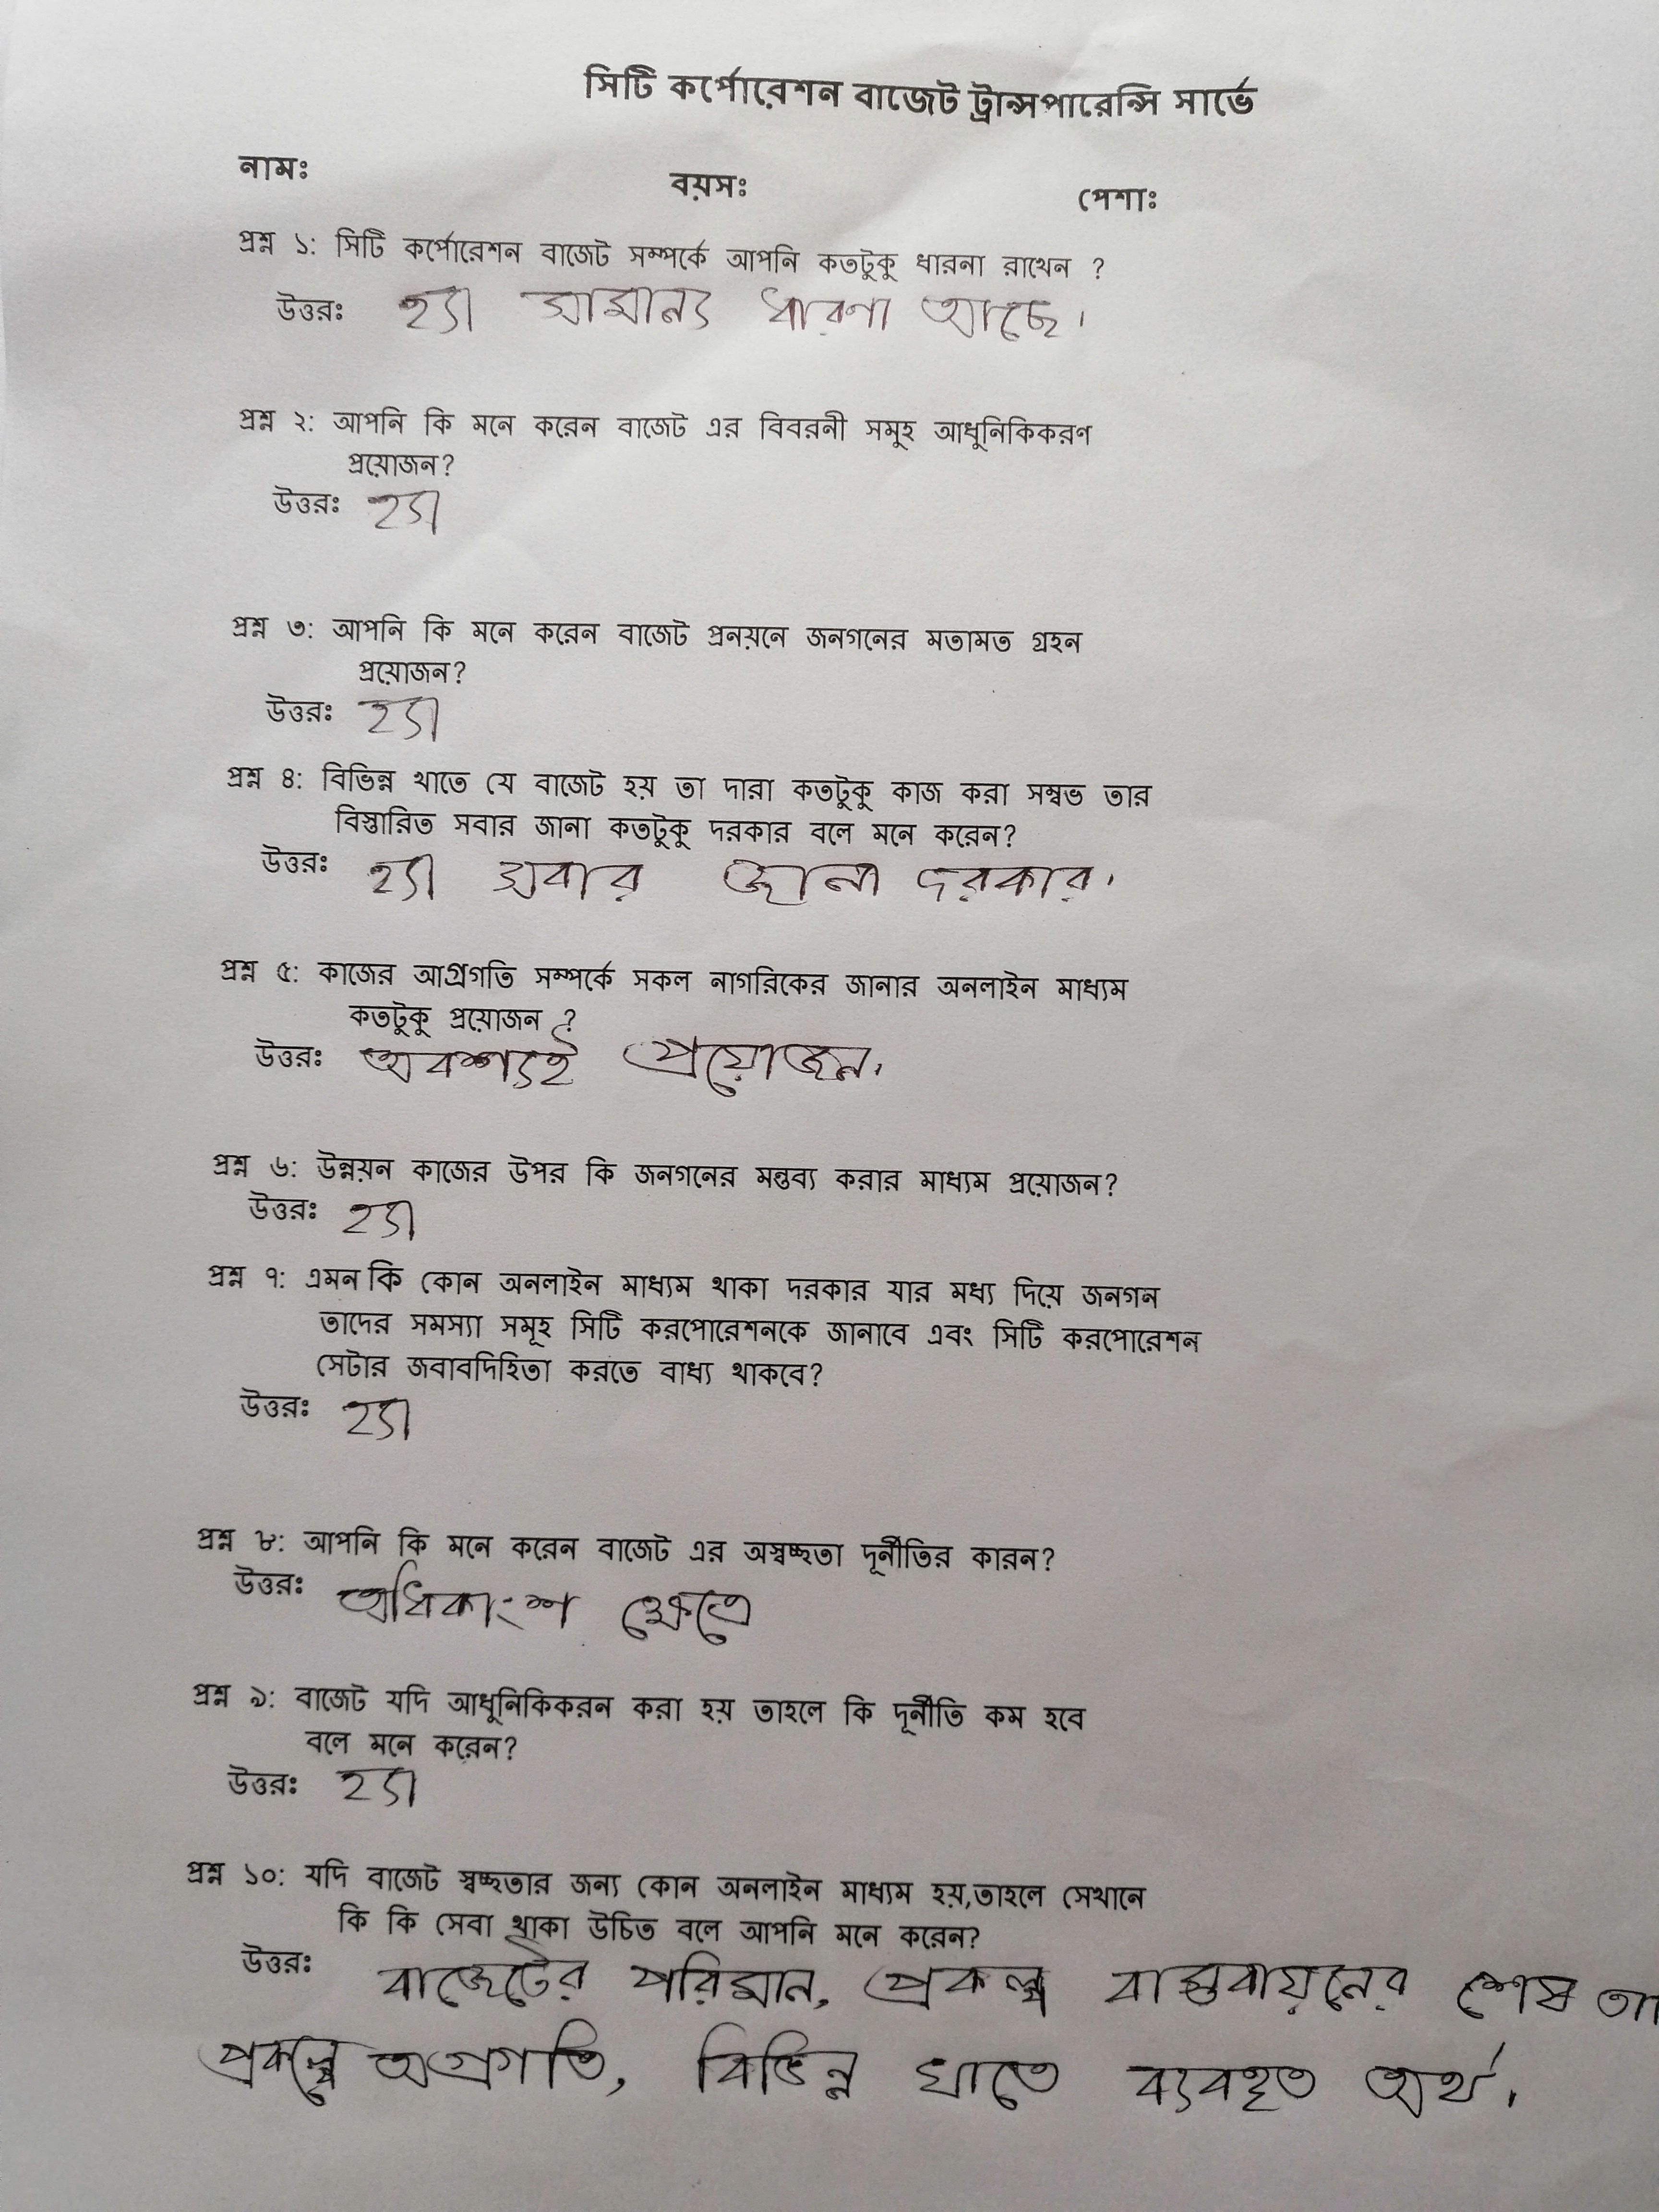 সিটি কর্পোরেশন বাজেট ট্রান্সপারেন্সি সার্ভে
নামঃ বয়সঃ পেশাঃ
প্রশ্ন ১: সিটি কর্পোরেশন বাজেট সম্পর্কে আপনি কতটুকু ধারনা রাখেন ?
উত্তরঃ হ্যা সামান্য ধারণা আছে।
প্রশ্ন ২: আপনি কি মনে করেন বাজেট এর বিবরনী সমুহ আধুনিকিকরণ
প্রয়োজন?
উত্তরঃ হ্যা
প্রশ্ন ৩: আপনি কি মনে করেন বাজেট প্রনয়নে জনগনের মতামত গ্রহন
প্রয়োজন?
উত্তরঃ হ্যা
প্রশ্ন ৪: বিভিন্ন খাতে যে বাজেট হয় তা দারা কতটুকু কাজ করা সম্বভ তার
বিস্তারিত সবার জানা কতটুকু দরকার বলে মনে করেন?
উত্তরঃ হ্যা সবার জানা দরকার।
প্রশ্ন ৫: কাজের আগ্রগতি সম্পর্কে সকল নাগরিকের জানার অনলাইন মাধ্যম
কতটুকু প্রয়োজন ?
উত্তরঃ অবশ্যই প্রয়োজন।
প্রশ্ন ৬: উন্নয়ন কাজের উপর কি জনগনের মন্তব্য করার মাধ্যম প্রয়োজন?
উত্তরঃ হ্যা
প্রশ্ন ৭: এমন কি কোন অনলাইন মাধ্যম থাকা দরকার যার মধ্য দিয়ে জনগন
তাদের সমস্যা সমূহ সিটি করপোরেশনকে জানাবে এবং সিটি করপোরেশন
সেটার জবাবদিহিতা করতে বাধ্য থাকবে?
উত্তরঃ হ্যা
প্রশ্ন ৮: আপনি কি মনে করেন বাজেট এর অস্বচ্ছতা দূর্নীতির কারন?
উত্তরঃ অধিকাংশ ক্ষেত্রে
প্রশ্ন ৯: বাজেট যদি আধুনিকিকরন করা হয় তাহলে কি দূর্নীতি কম হবে
বলে মনে করেন?
উত্তরঃ হ্যা
প্রশ্ন ১০: যদি বাজেট স্বচ্ছতার জন্য কোন অনলাইন মাধ্যম হয়,তাহলে সেখানে
কি কি সেবা থাকা উচিত বলে আপনি মনে করেন?
উত্তরঃ বাজেটের পরিমান, প্রকল্প বাস্তবায়নের শেষ
প্রকল্পে অগ্রগতি, বিভিন্ন খাতে ব্যবহৃত অর্থ।